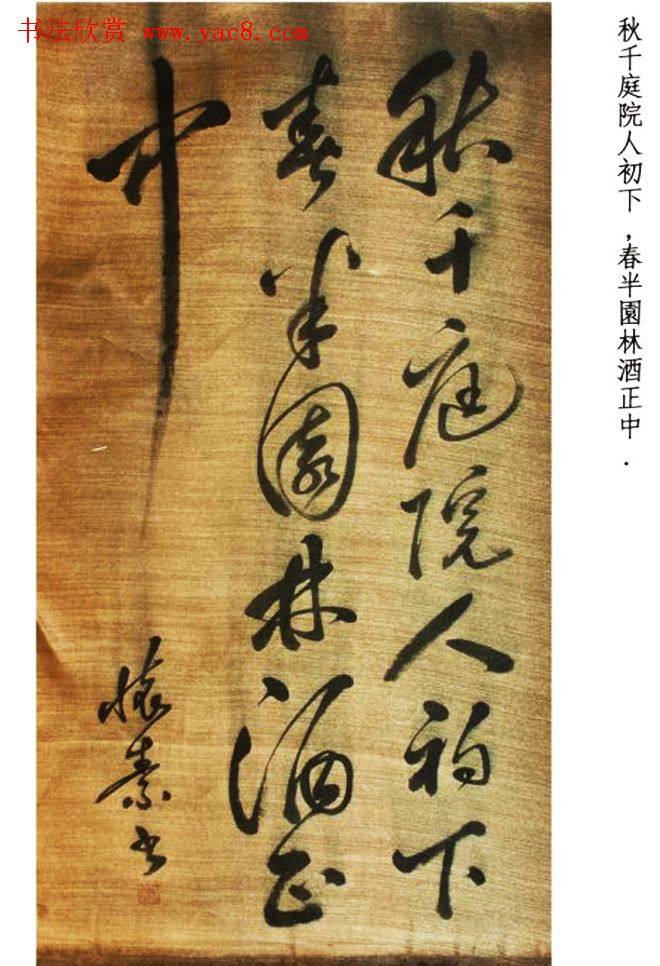 书法欣赏 www.yac8.com
秋千庭院人初下
春半園林酒正
中
懷素书
秋千庭院人初下，春半園林酒正中.